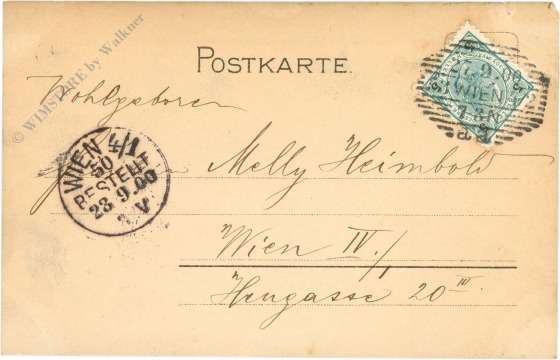 © WIMSTORE by Walkner
POSTKARTE.
Wohlgeboren
Melly Heimbold
Wien IV./1
Heugasse 20 III
WIEN 4/1
50
BESTELLT
23.9.00
V
WIEN